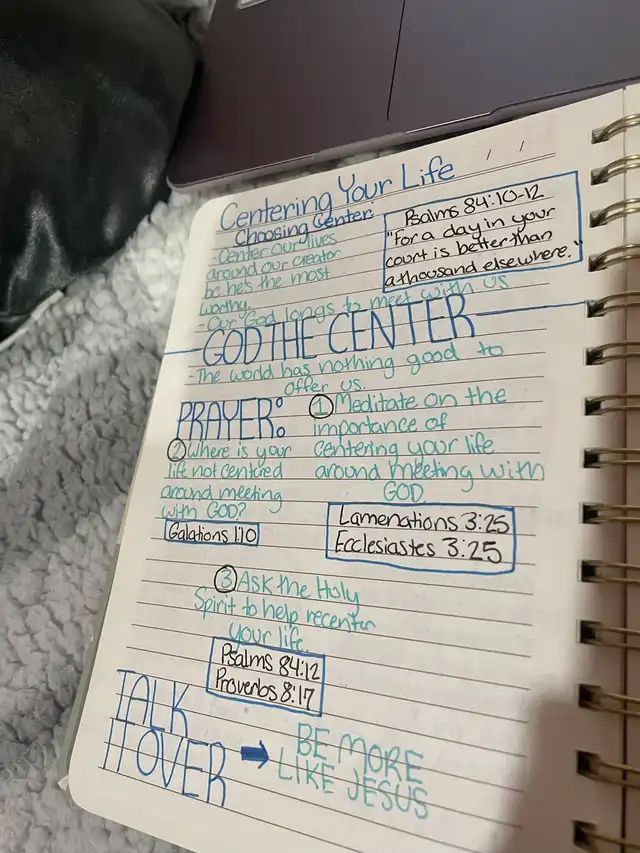 Centering Your Life
Choosing Center:
-Center our lives
around our creator
bc he's the most
worthy.
-Our God longs to meet with us
Psalms 84:10-12
"For a day in your
court is better than
a thousand elsewhere."
GOD THE CENTER
-The world has nothing good to
offer us.
PRAYER:
① Meditate on the
importance of
centering your life
around meeting with
GOD
Lamenations 3:25
Ecclesiastes 3:25
② Where is your
life not centred
around meeting
with GOD?
Galations 1:10
③ Ask the Holy
Spirit to help recenter
your life.
Psalms 84:12
Proverbs 8:17
TALK
IT OVER
BE MORE
LIKE JESUS